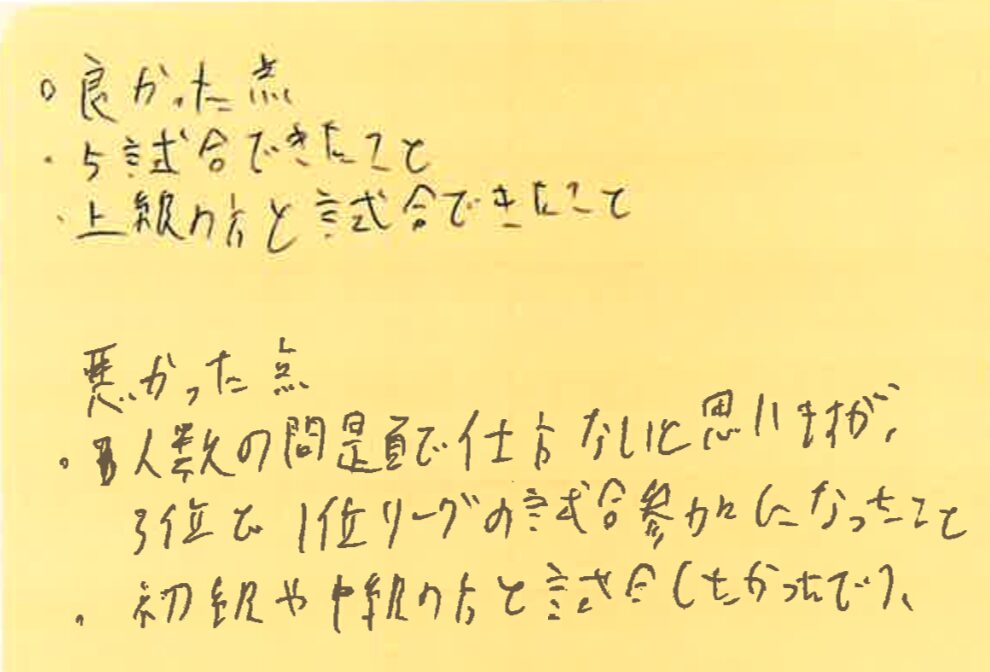 ○良かった点
・5試合できたこと
・上級の方と試合できたこと
悪かった点
・人数の問題で仕方ないと思いますが、
3位で1位リーグの試合参加になったこと
・初級や中級の方と試合したかったです、